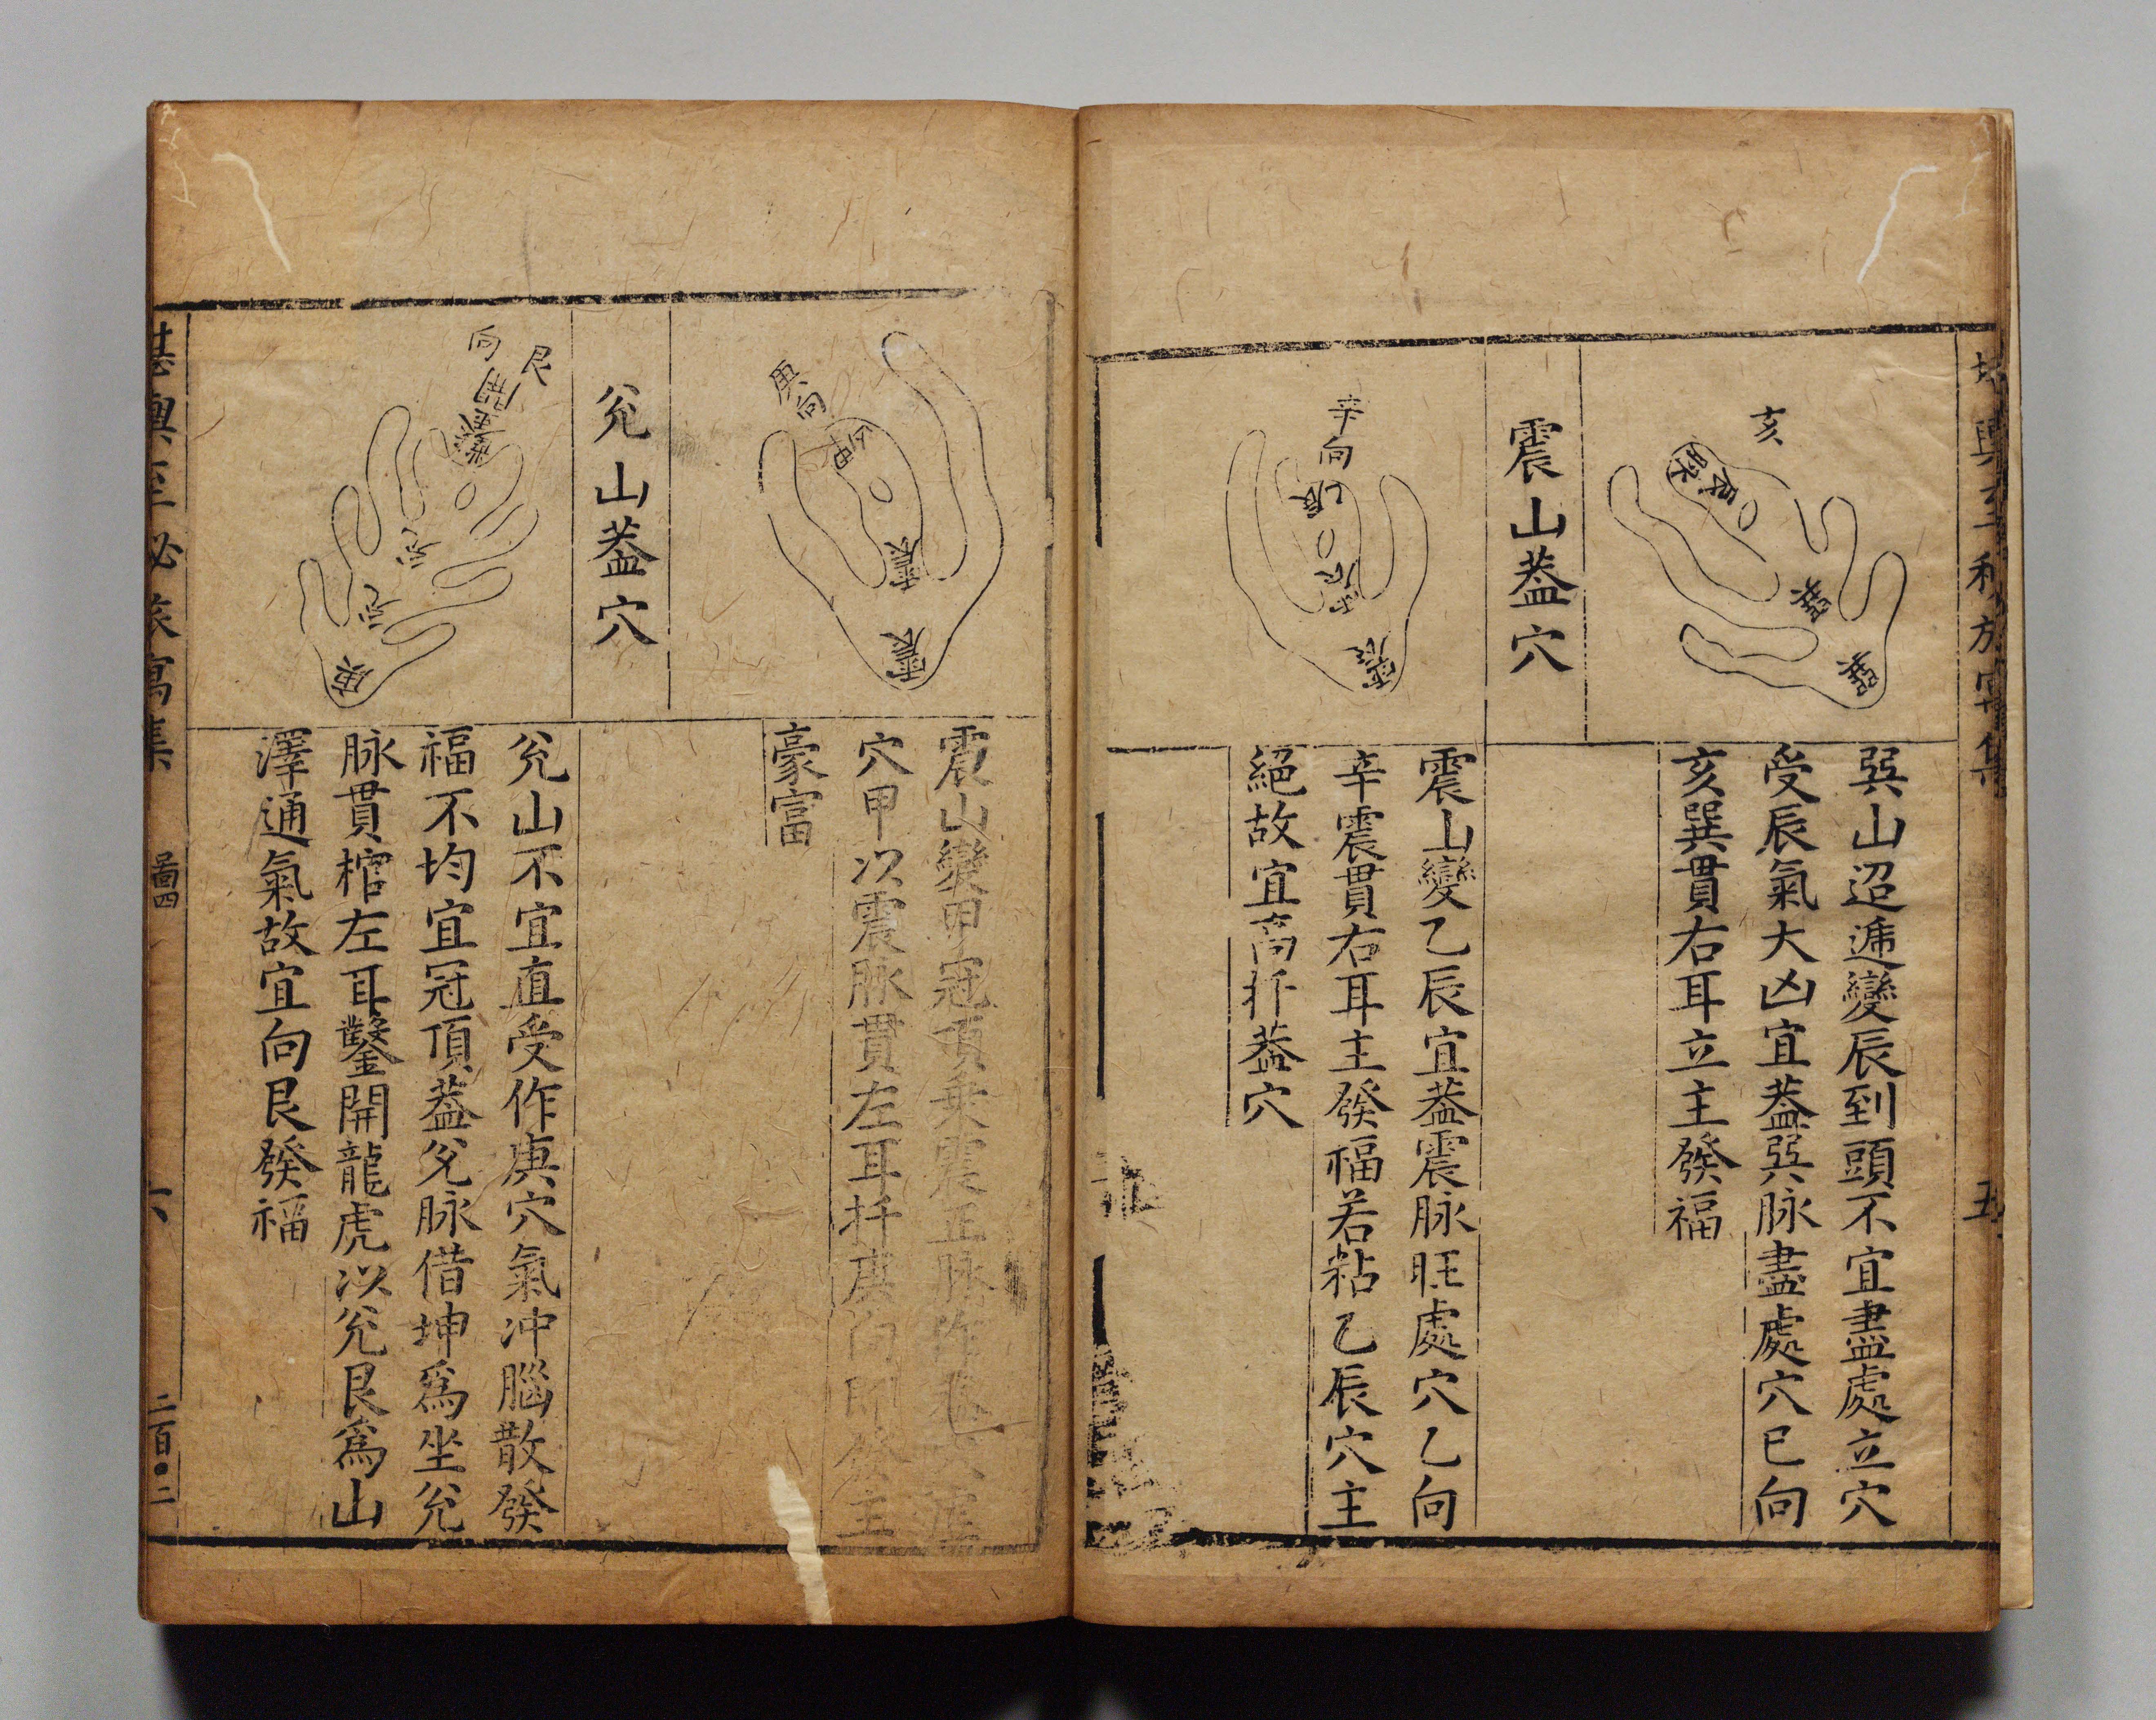 亥
辰
巽
巽
巽山迢遞變辰到頭不宜盡處立穴
受辰氣大凶宜葢巽脉盡處穴巳向
亥巽貫右耳立主發福
震山葢穴
辛向
乙辰
震
震
震山變乙辰宜葢震脉旺處穴乙向
辛震貫右耳主發福若粘乙辰穴主
絕故宜高扦葢穴
五
庚向
甲
震
震
震山變甲冠頂乘震正脉作
穴甲以震脉貫左耳扦庚向
主
豪富
兊山葢穴
艮
向
兊
兊
庚
兊山不宜直受作庚穴氣冲腦散發
福不均宜冠頂葢兊脉借坤爲坐兊
脉貫棺左耳鑿開龍虎以兊艮爲山
澤通氣故宜向艮發福
圖四
六
二百〇二